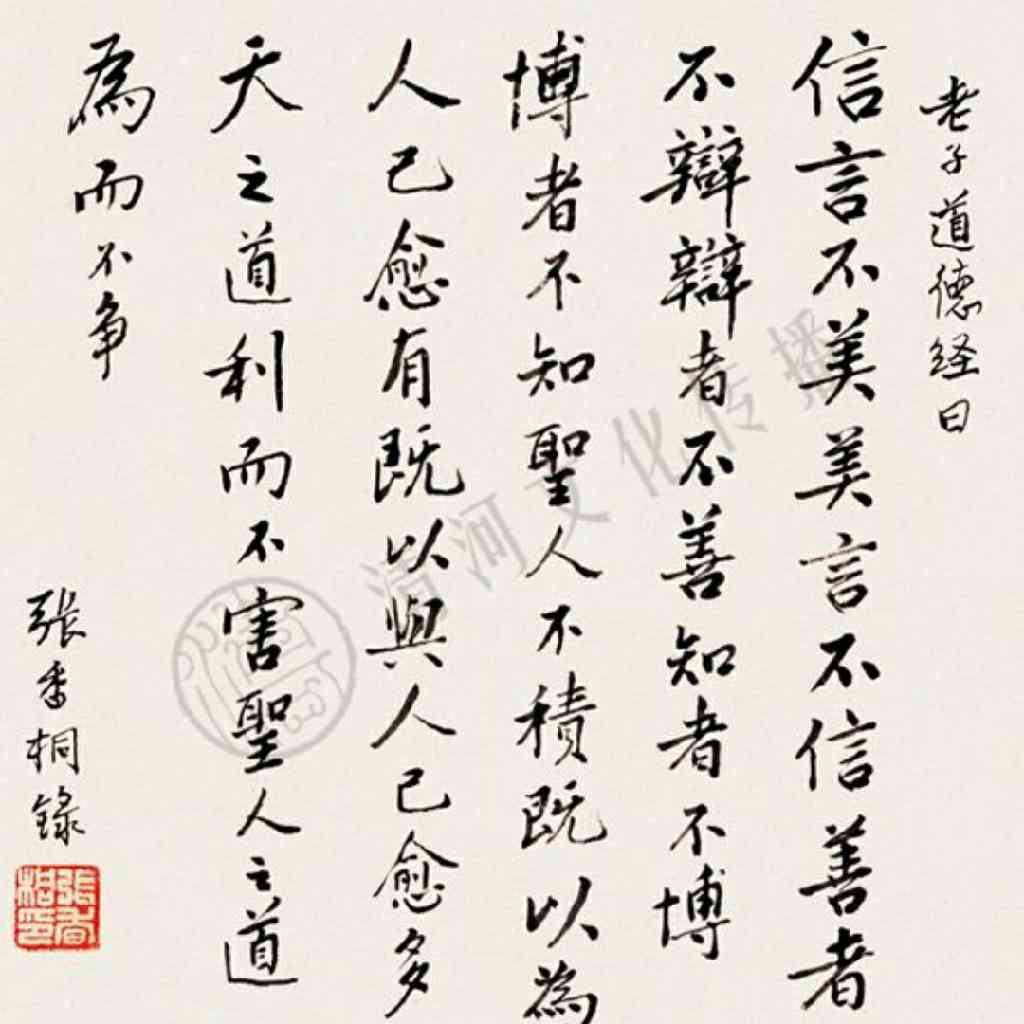 老子道德经曰
信言不美美言不信善者
不辯辯者不善知者不博
博者不知聖人不積既以為
人己愈有既以與人己愈多
天之道利而不害聖人之道
為而不争
張香桐錄
張香桐印
河文化传播